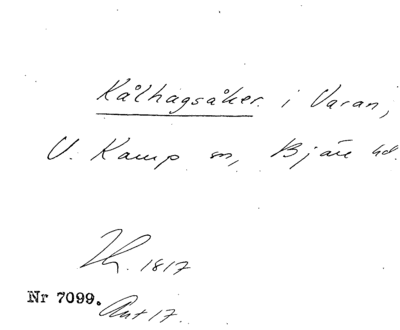 Kålhagsåker i Varan,
V. Karup sn, Bjäre hd.
1817
Nr 7099.
Ant 17.